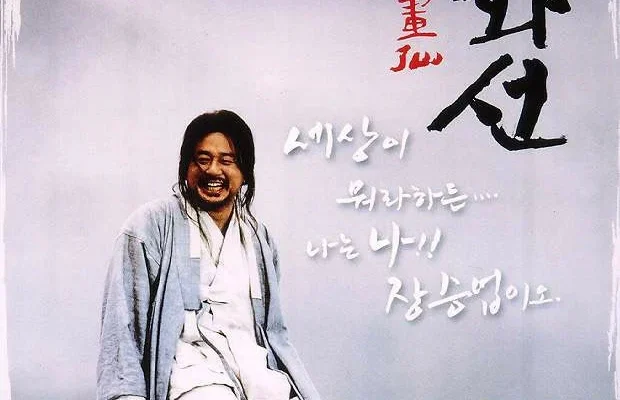 화선
세상이
뭐라하든....
나는 나!!
장승업이오.